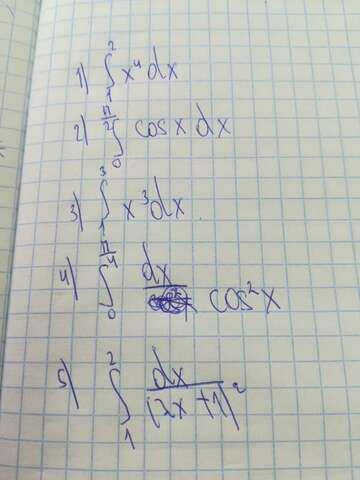 1) ∫₁² x⁴dx
2) ∫₀^(π/2) cosx dx
3) ∫₁³ x³dx
4) ∫₀^(π/4) dx/cos²x
5) ∫₁² dx/(2x+1)²